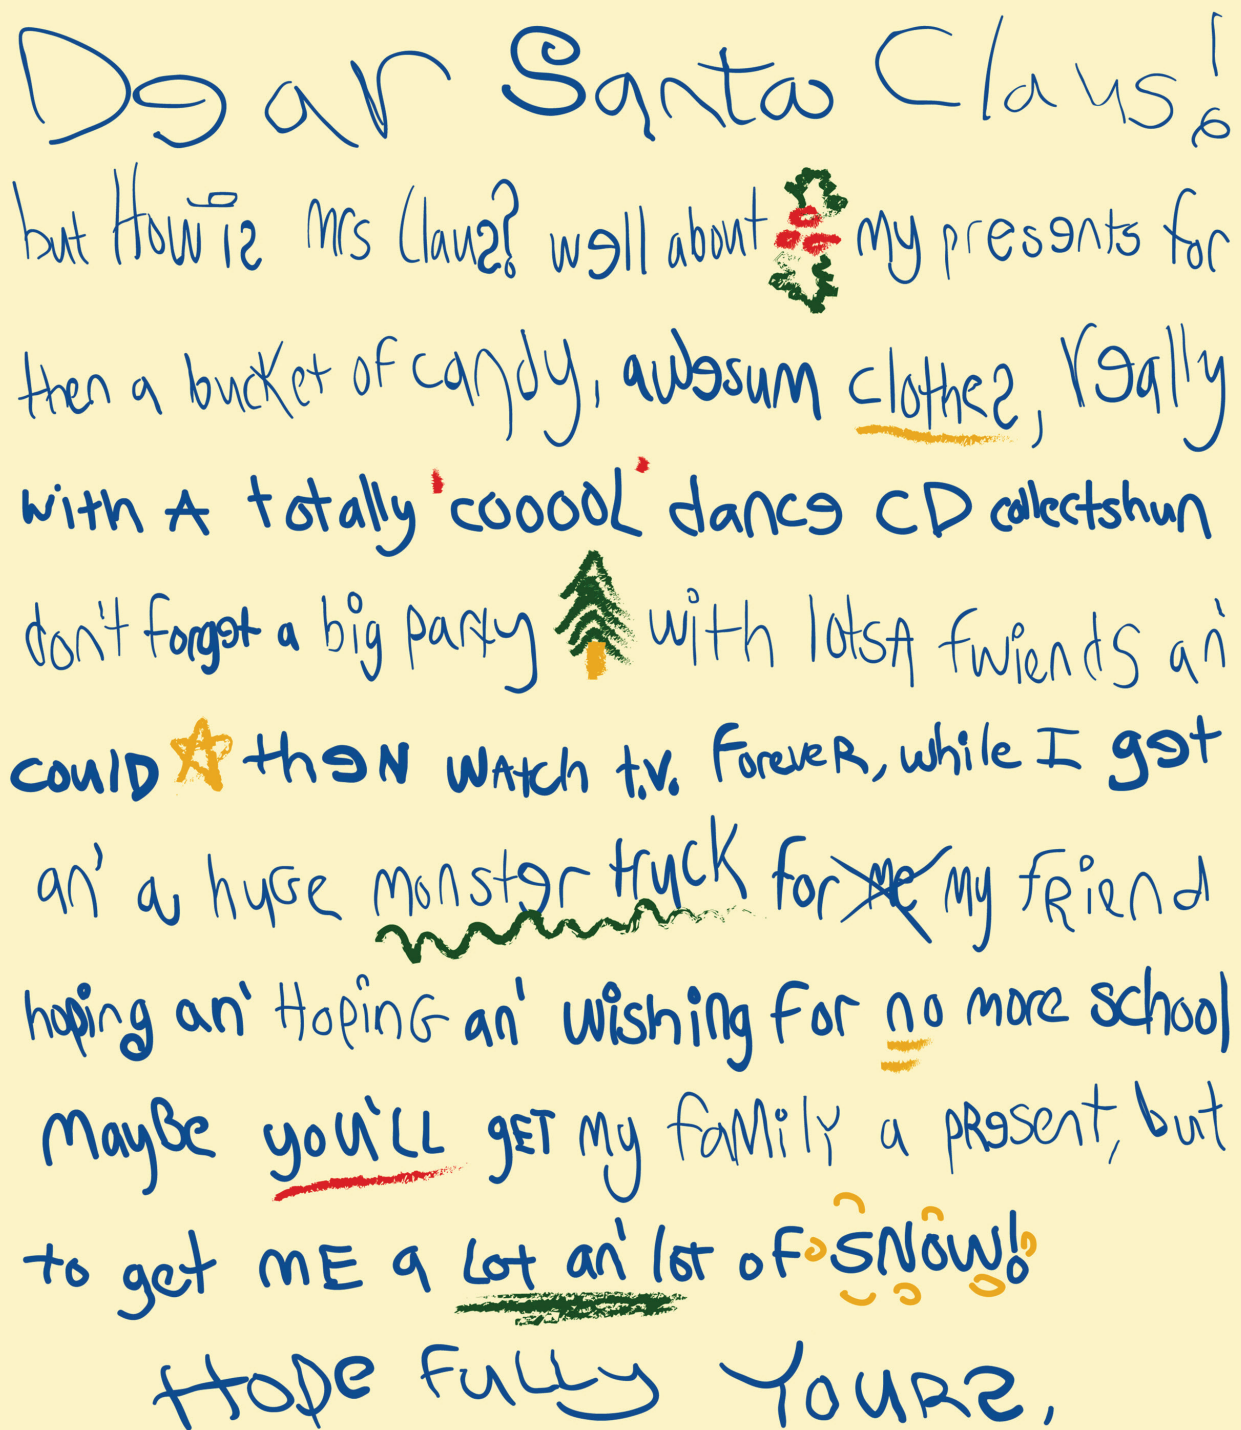 Dear Santa Claus!
but How is Mrs Claus? well about my presents for
then a bucket of candy, awesum clothes, really
with A totally 'cooool' dance CD collectshun
don't forget a big party with lotsA fwiends an'
couLD theN WAtcH t.v. ForeveR, while I get
an' a huGe monster truck for me my fRiend
hoping an' HopinG an' wishing for no more school
MayBe you'LL gET My faMilY a pResent, but
to get ME a Lot an' lot of SNOW!
HOpe FuLLy YOURs,